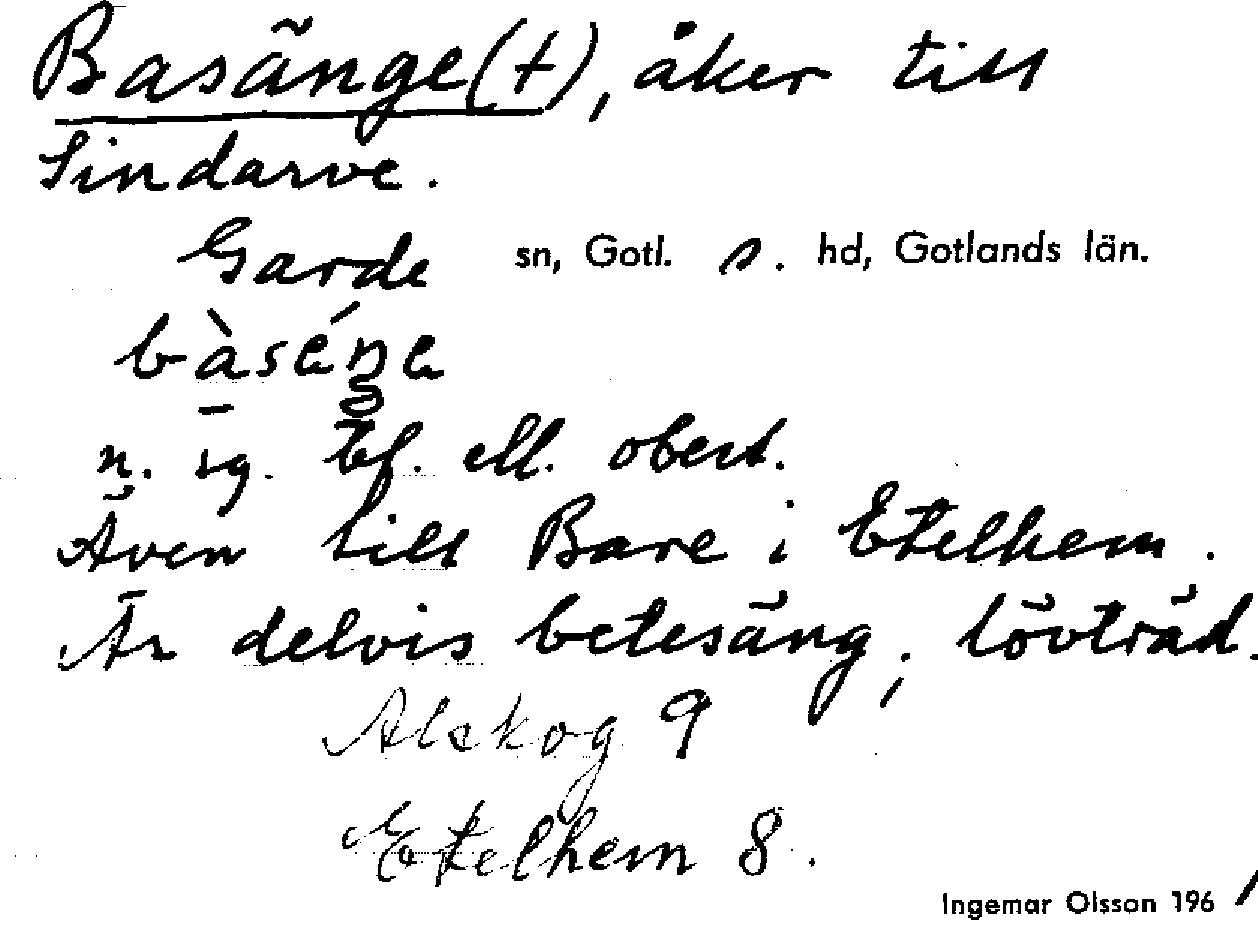 Basänge(t), åker till
Sindarve.
Garde sn, Gotl. s. hd, Gotlands län.
n. sg. bf. ell. obest.
Även till Bare i Etelhem.
Är delvis betesäng; lövträd.
Alskog 9
Etelhem 8.
Ingemar Olsson 196/